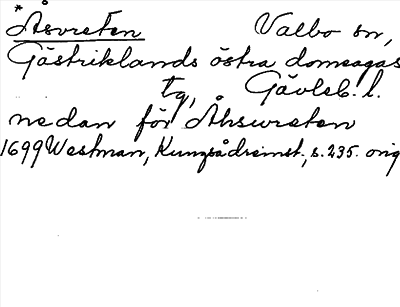 *Åsvreten Valbo sn,
Gästriklands östra domsagas
tg, Gävleb. l.
nedan för Åhsvreten
1699 Westman, Kungsådreinst., s. 235. orig